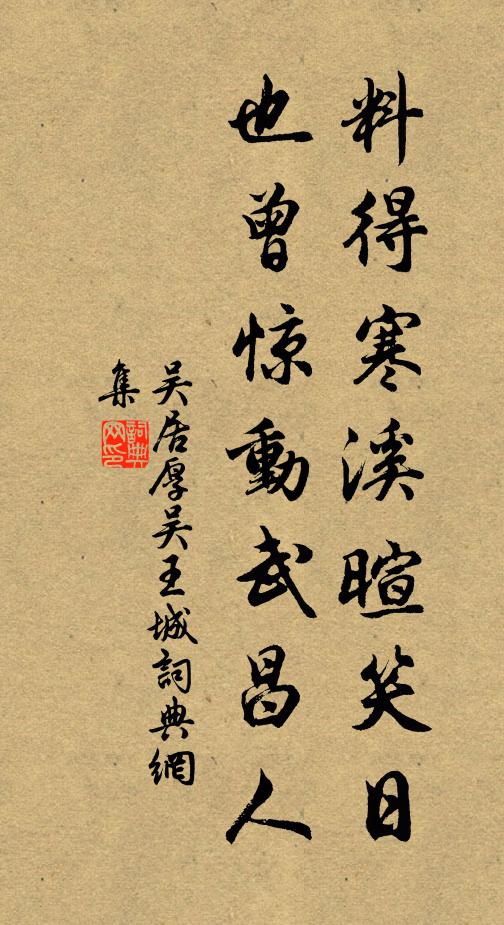 料得寒溪暄笑日
也曾惊動武昌人
吴居厚吴王城詞典網
集
詞典
网印